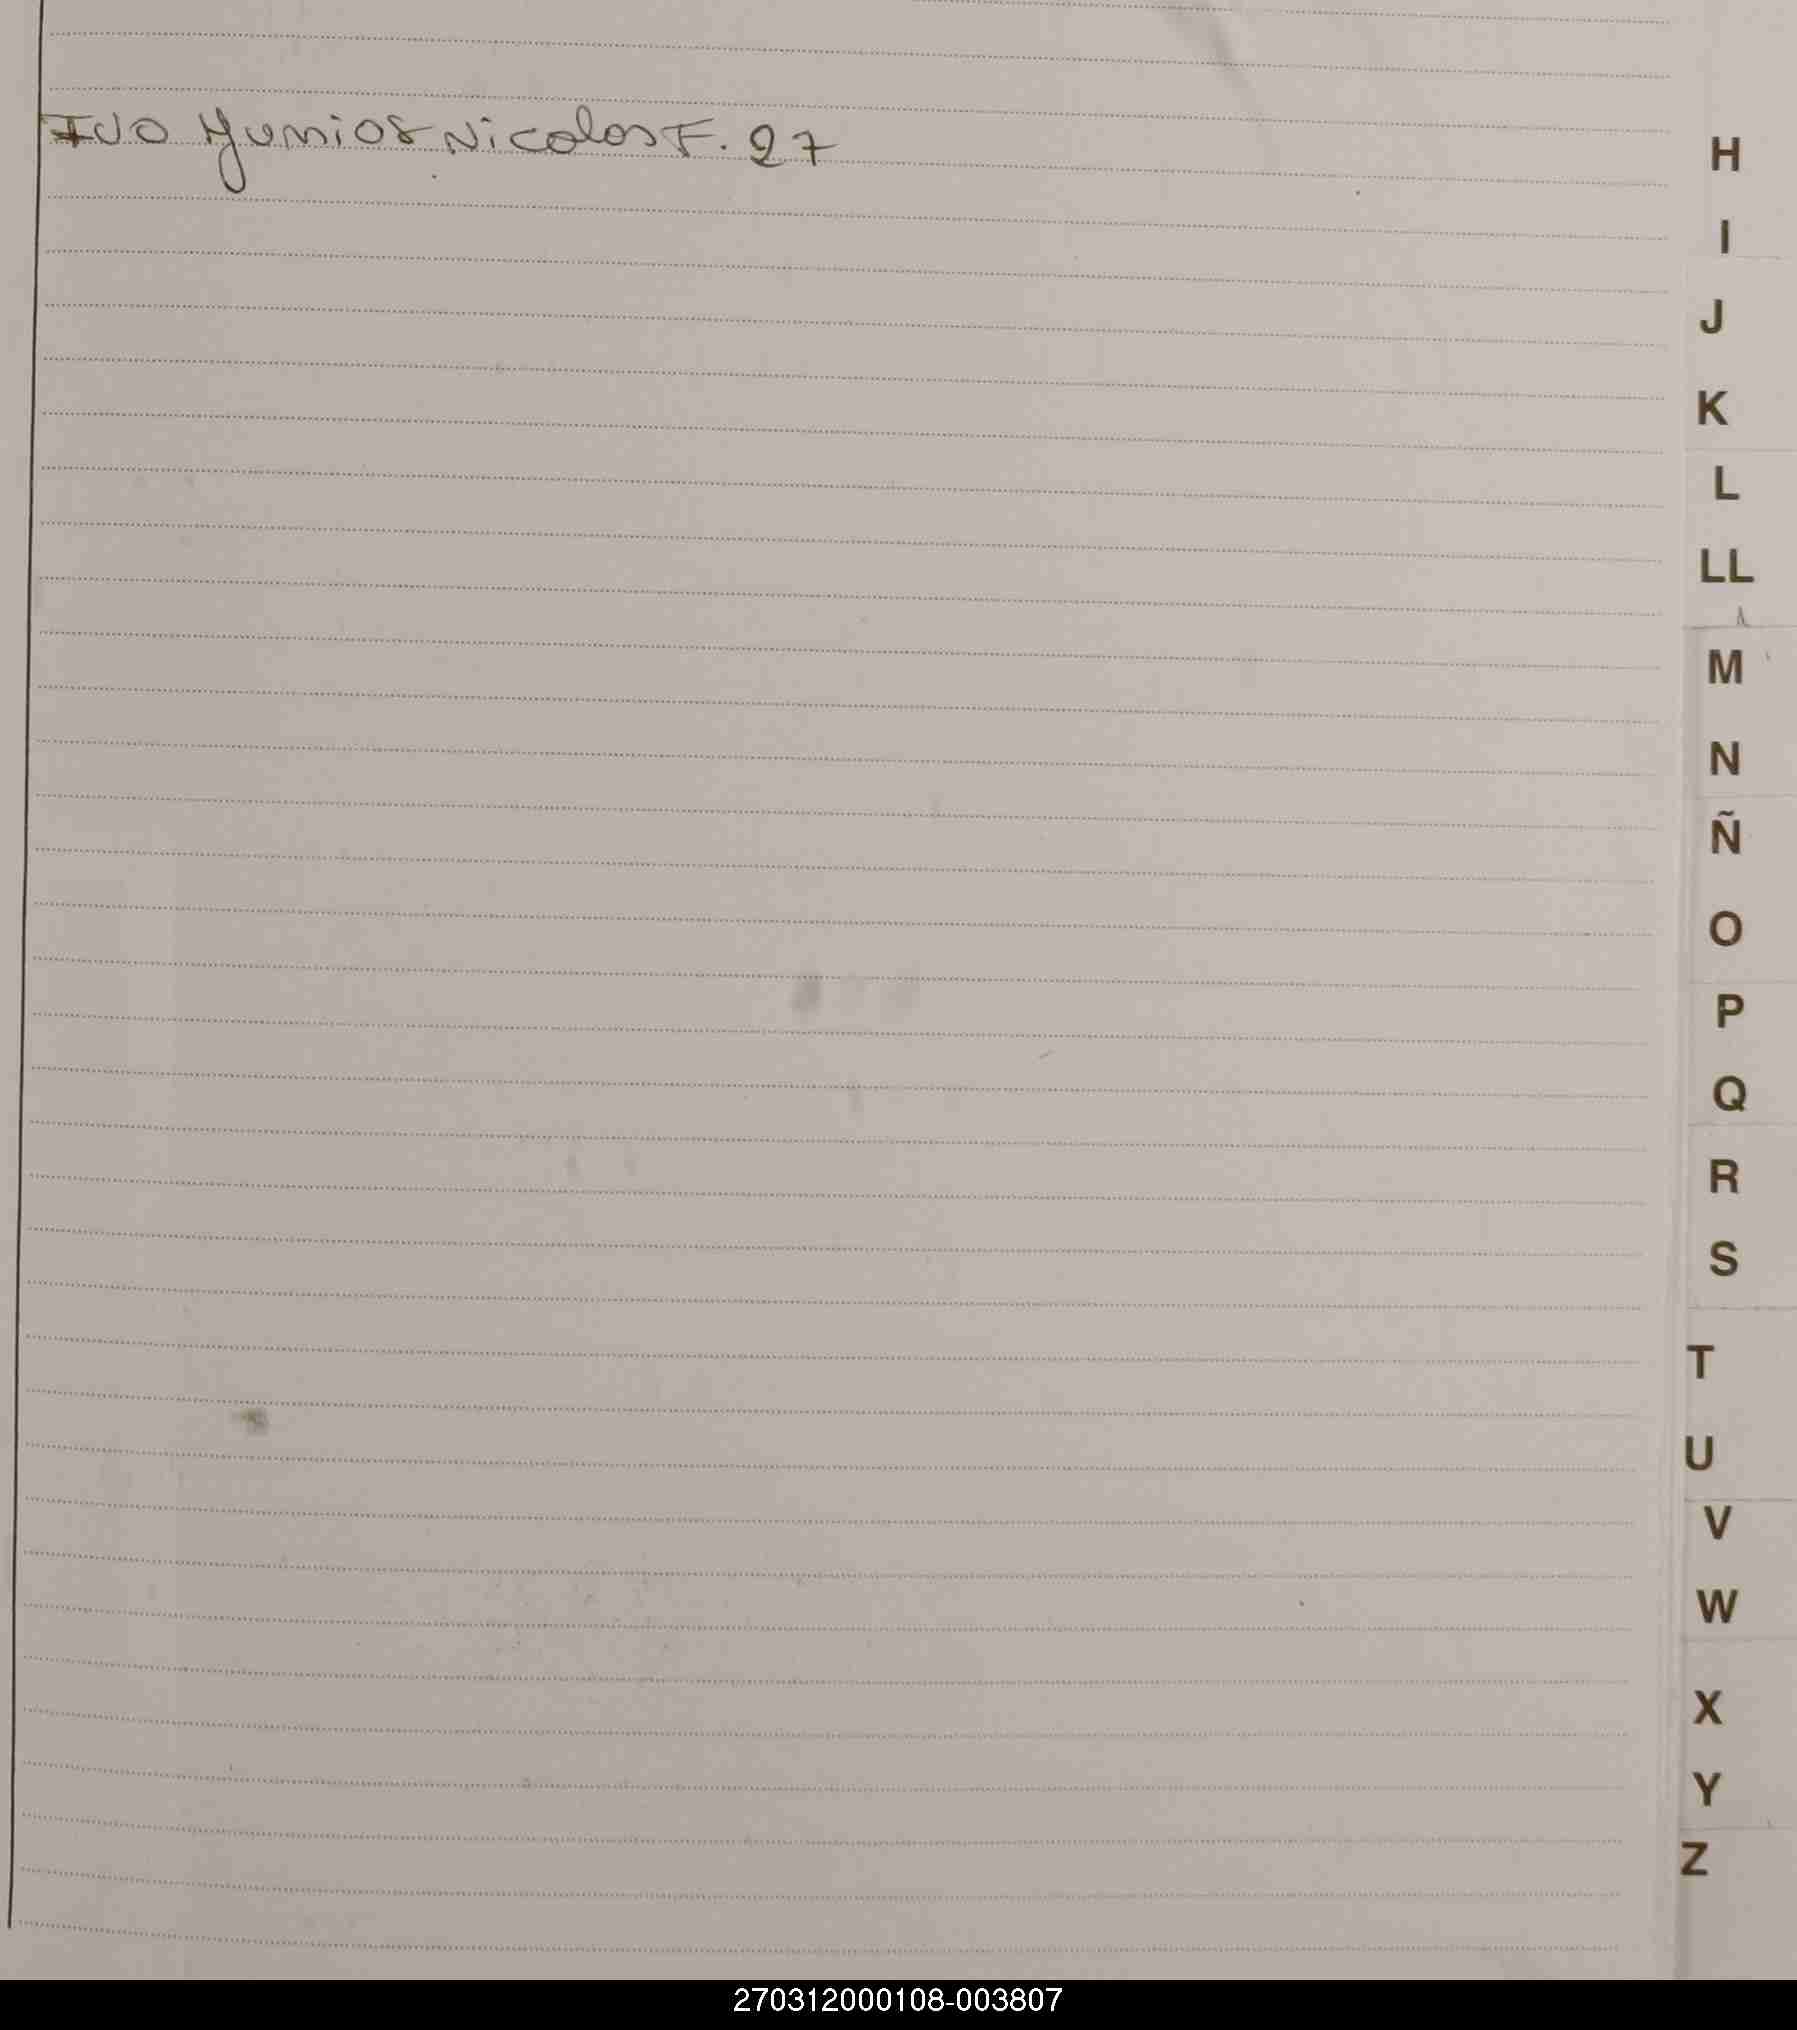 Ivo Yunior Nicolas F. 27
H
I
J
K
L
LL
M
N
Ñ
O
P
Q
R
S
T
U
V
W
X
Y
Z
270312000108-003807